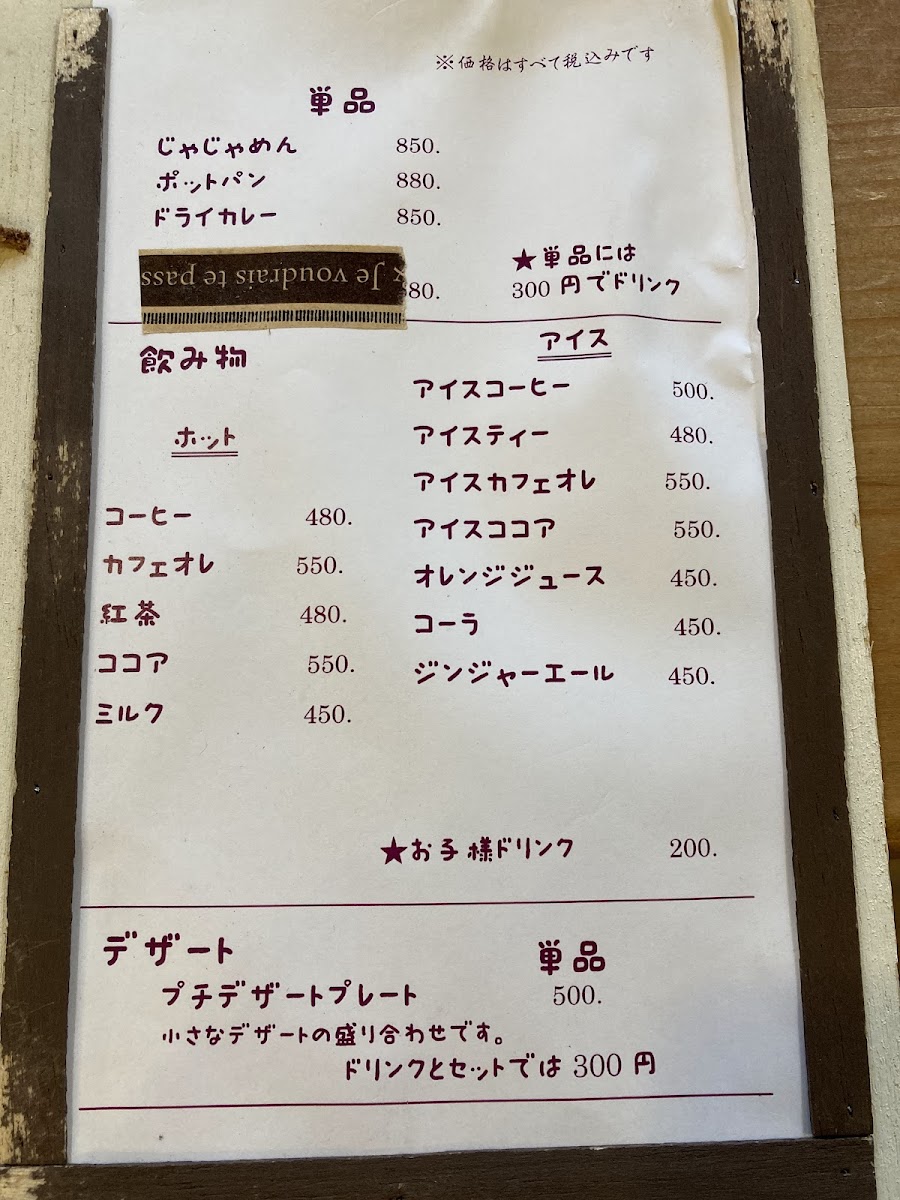 ※価格はすべて税込みです
単品
じゃじゃめん 850.
ポットパン 880.
ドライカレー 850.
x Je voudrais te pass
80.
★単品には
300 円でドリンク
飲み物
ホット
コーヒー 480.
カフェオレ 550.
紅茶 480.
ココア 550.
ミルク 450.
アイス
アイスコーヒー 500.
アイスティー 480.
アイスカフェオレ 550.
アイスココア 550.
オレンジジュース 450.
コーラ 450.
ジンジャーエール 450.
★お子様ドリンク 200.
デザート 単品
プチデザートプレート 500.
小さなデザートの盛り合わせです。
ドリンクとセットでは 300 円